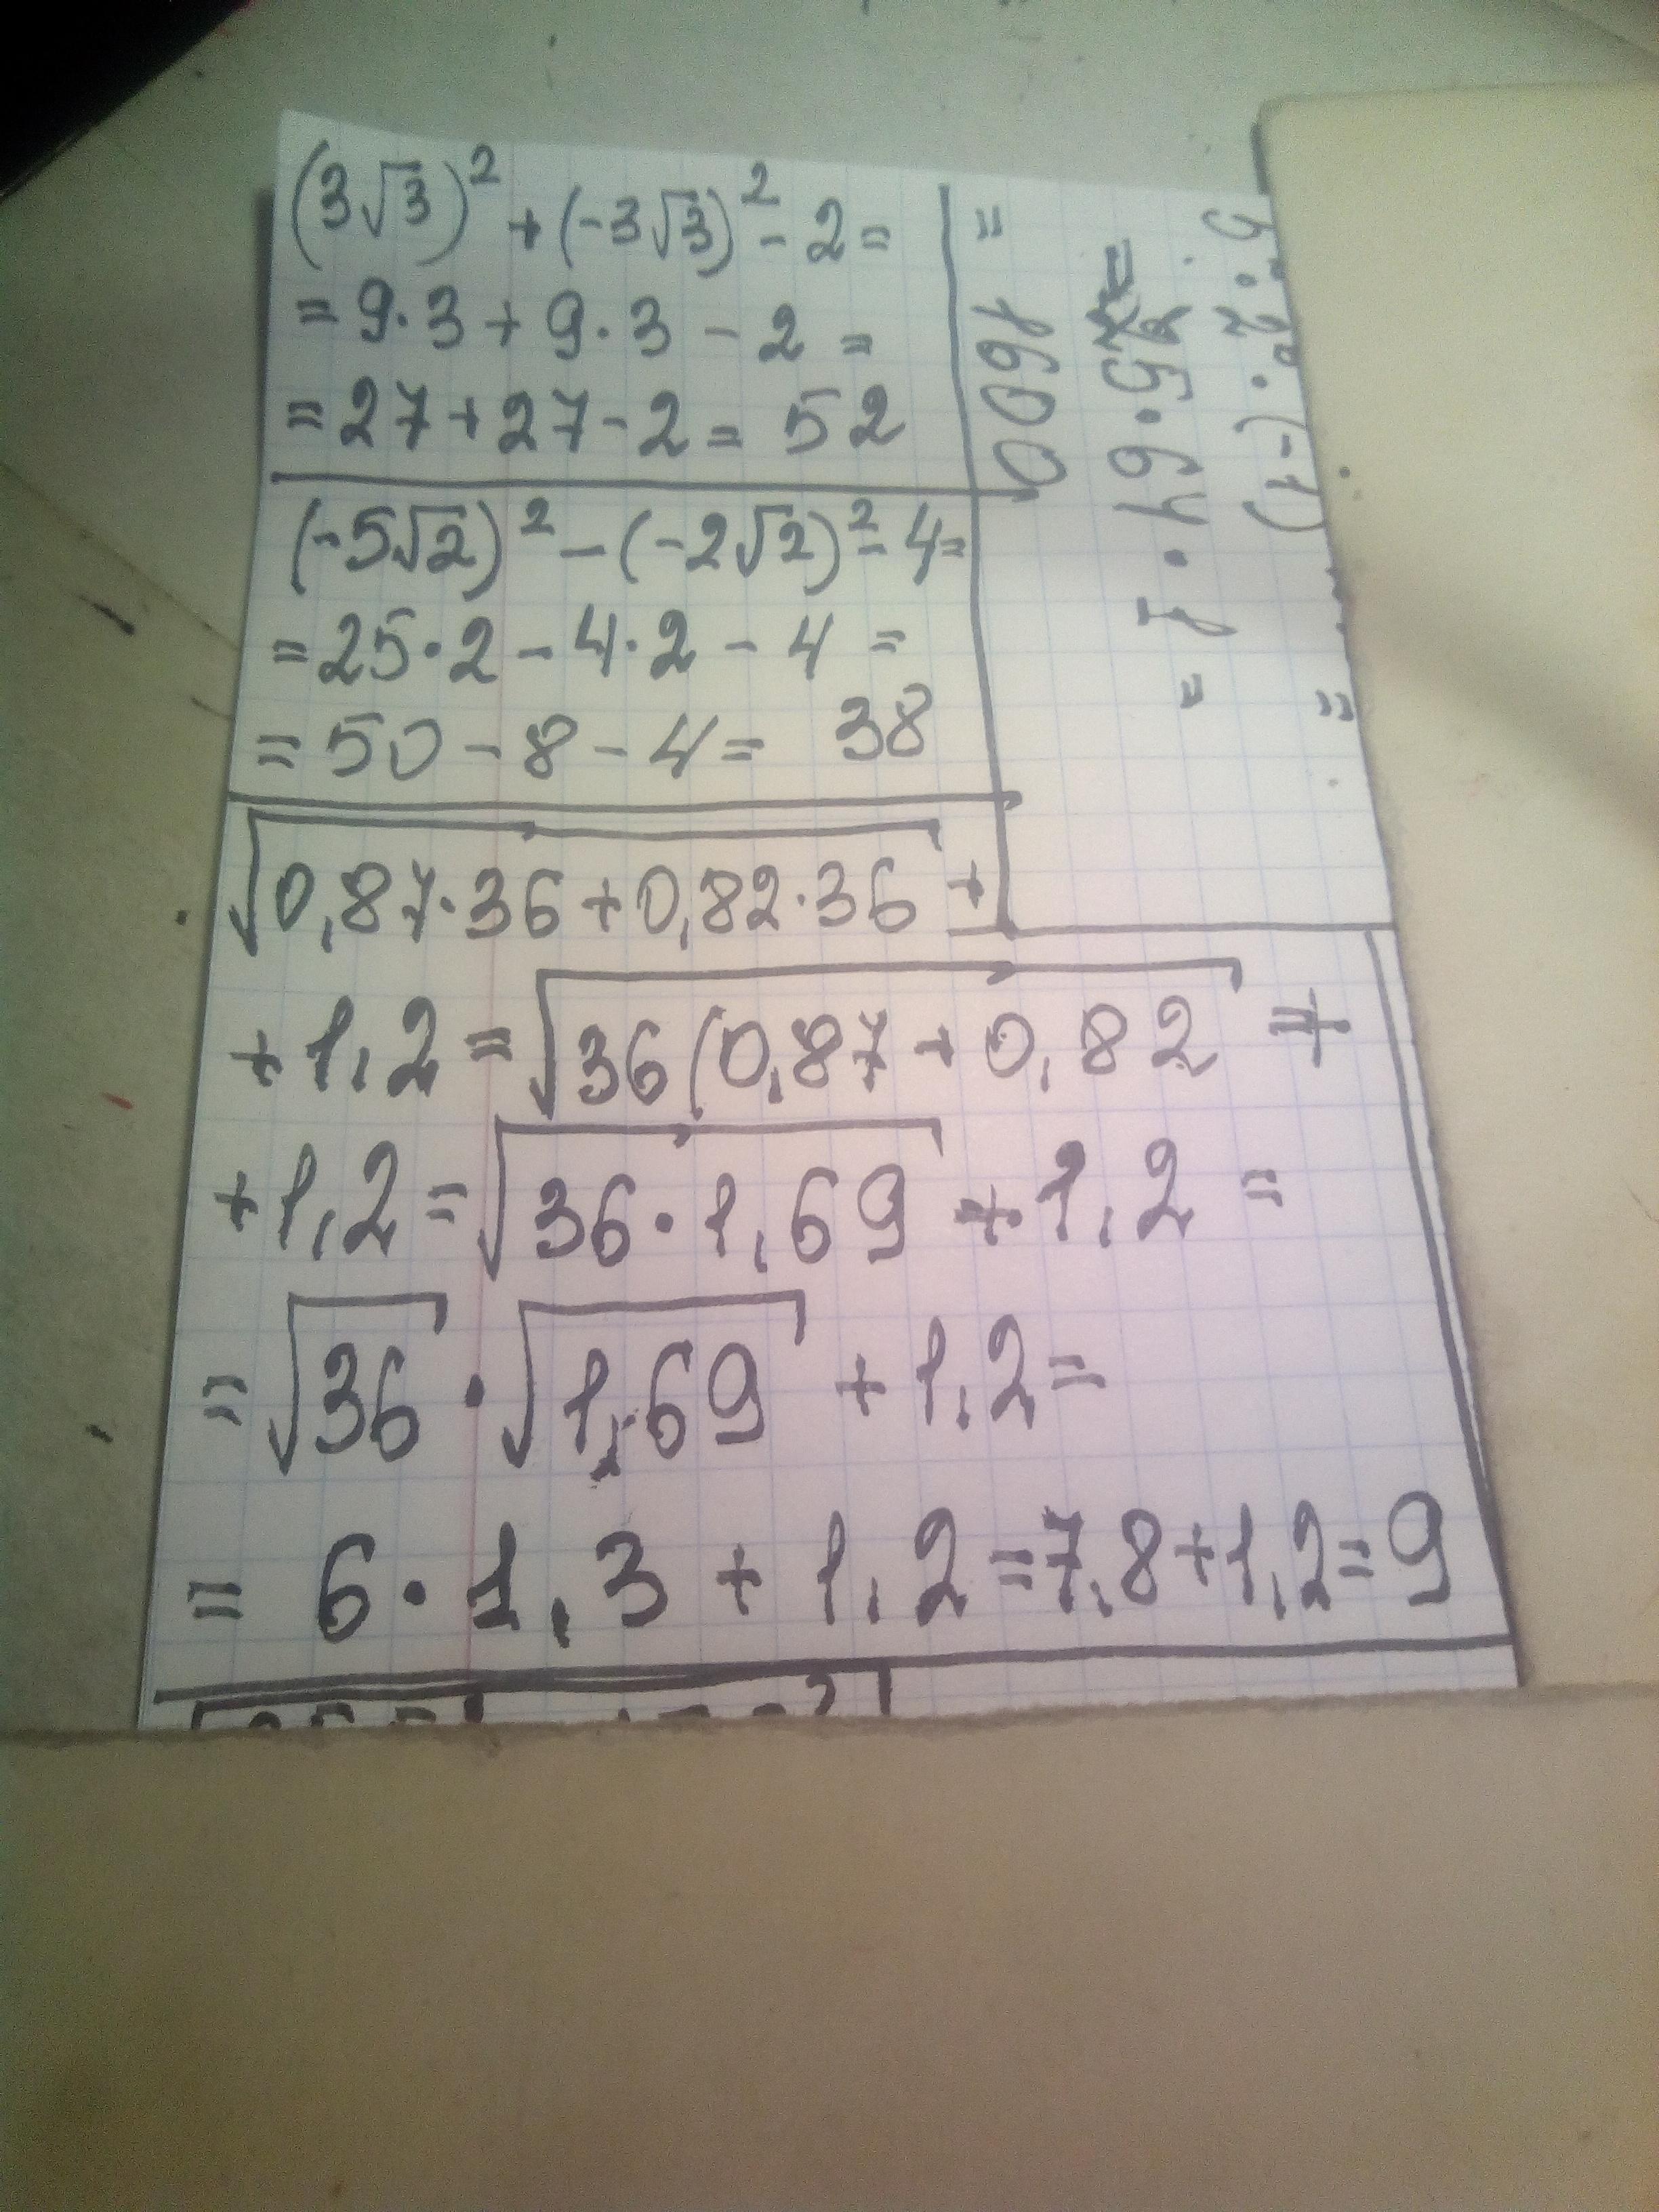 (3√3)² + (-3√3)² - 2 =
= 9·3 + 9·3 - 2 =
= 27 + 27 - 2 = 52
(-5√2)² - (-2√2)² - 4 =
= 25·2 - 4·2 - 4 =
= 50 - 8 - 4 = 38
√0,87·36 + 0,82·36 +
+ 1,2 = √36(0,87 + 0,82 +
+ 1,2 = √36·1,69 + 1,2 =
= √36 · √1,69 + 1,2 =
= 6·1,3 + 1,2 = 7,8 + 1,2 = 9
= 1600